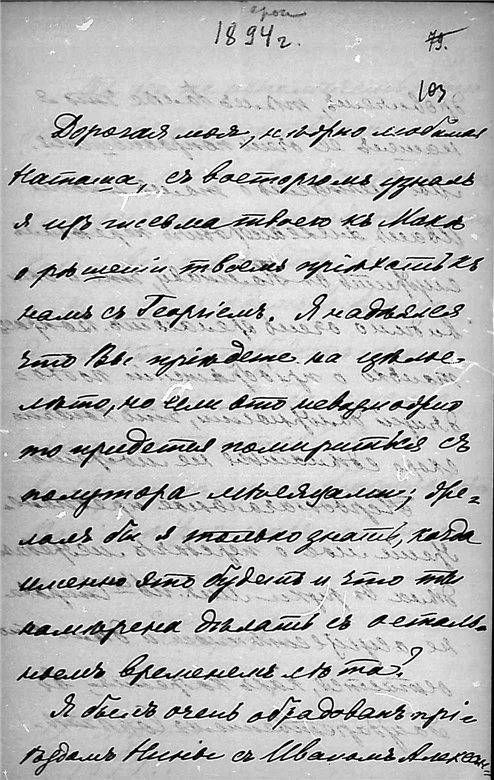 1894 г.
79.
103
Дорогая моя, и горно любимая
Наташа, съ восторгомъ узналъ
я изъ письма твоего къ Макѣ
о рѣшеніи твоемъ пріѣхать къ
намъ съ Георгіемъ. Я надѣялся
что Вы пріѣдете на цѣлое
лѣто, но если это невозможно
то придется помириться съ
полутора мѣсяцами; же-
лалъ бы я только знать, когда
именно это будетъ и что ты
намѣрена дѣлать съ осталь-
нымъ временемъ лѣта?
Я былъ очень обрадованъ прі-
ѣздомъ Нины съ Иваномъ Алексан.